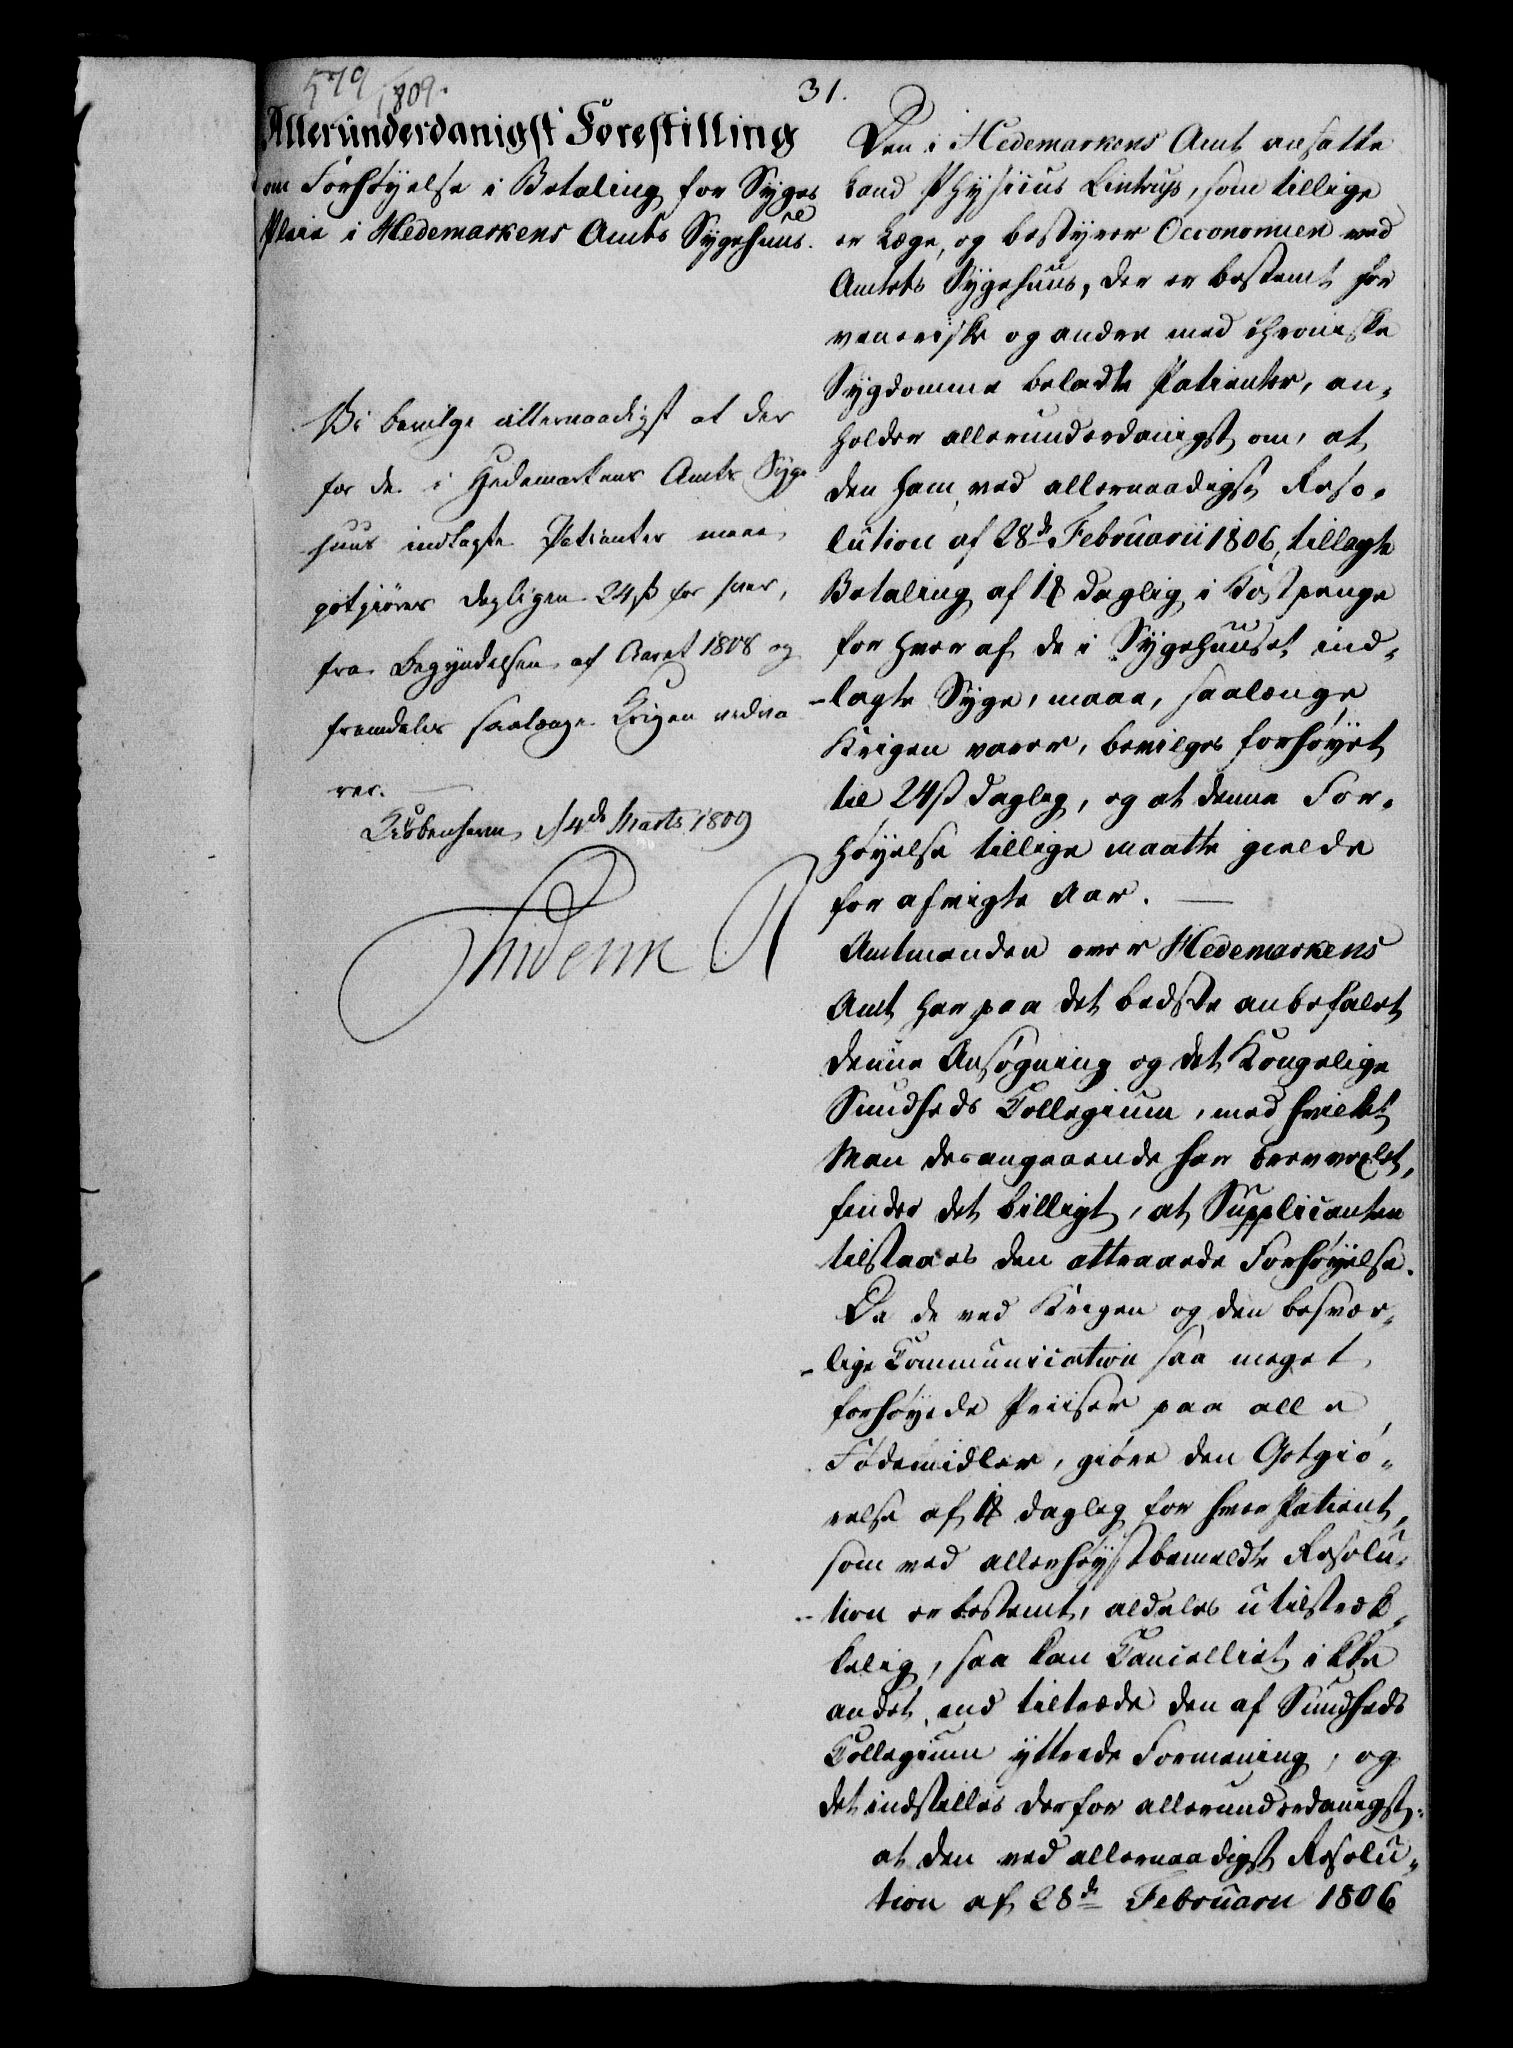 579
1809.
31.
Allerunderdanigst Forestilling
om Forhøyelse i Betaling for Syges
Pleie i Hedemarkens Amts Sygehuus.
Vi bevilge allernaadigst at der
for de i Hedemarkens Amts Syge
huus indlagte Patienter maae
godtgiøres dagligen 24 ß for hver,
fra Begyndelsen af Aaret 1808 og
fremdeles saalænge Krigen vedva
rer.
Kiøbenhavn d 4de Marts 1809
Friderik R
Den i Hedemarkens Amt ansatte
Land Physicus Lintrup, som tillige
er Læge, og bestyrer Oeconomien ved
Amtets Sygehuus, der er bestemt for
veneriske og andre med chroniske
Sygdomme beladte Patienter, an-
holder allerunderdanigst om, at
den ham ved allernaadigst Reso-
lution af 28de Februarii 1806, tillagte
Betaling af 1 ₰ daglig i Kostpenge
for hver af de i Sygehuuset ind-
lagte Syge, maae, saalænge
Krigen varer, bevilges forhøyet
til 24 ß daglig, og at denne For-
høyelse tillige maatte gielde
for afvigte Aar.
Amtmanden over Hedemarkens
Amt har paa det bedste anbefalet
denne Ansøgning og det Kongelige
Sundheds Collegium, med hvilket
Man desangaaende har brevvexlet,
finder det billigt, at Supplicanten
tilstaaes den attraaede Forhøyelse.
Da de ved Krigen og den besvær-
lige Communication saa meget
forhøyede Priiser paa alle
Fødemidler, giøre den Gotgiø-
relse af 1 ₰ daglig for hver Patient,
som ved allerhøystbemeldte Resolu-
tion er bestemt, aldeles utilstræk-
kelig, saa kan Cancelliet ikke
andet end tiltræde den af Sundheds
Collegium yttrede Formening, og
det indstilles derfor allerunderdanigst:
at den ved allernaadigst Resolu-
tion af 28de Februarii 1806